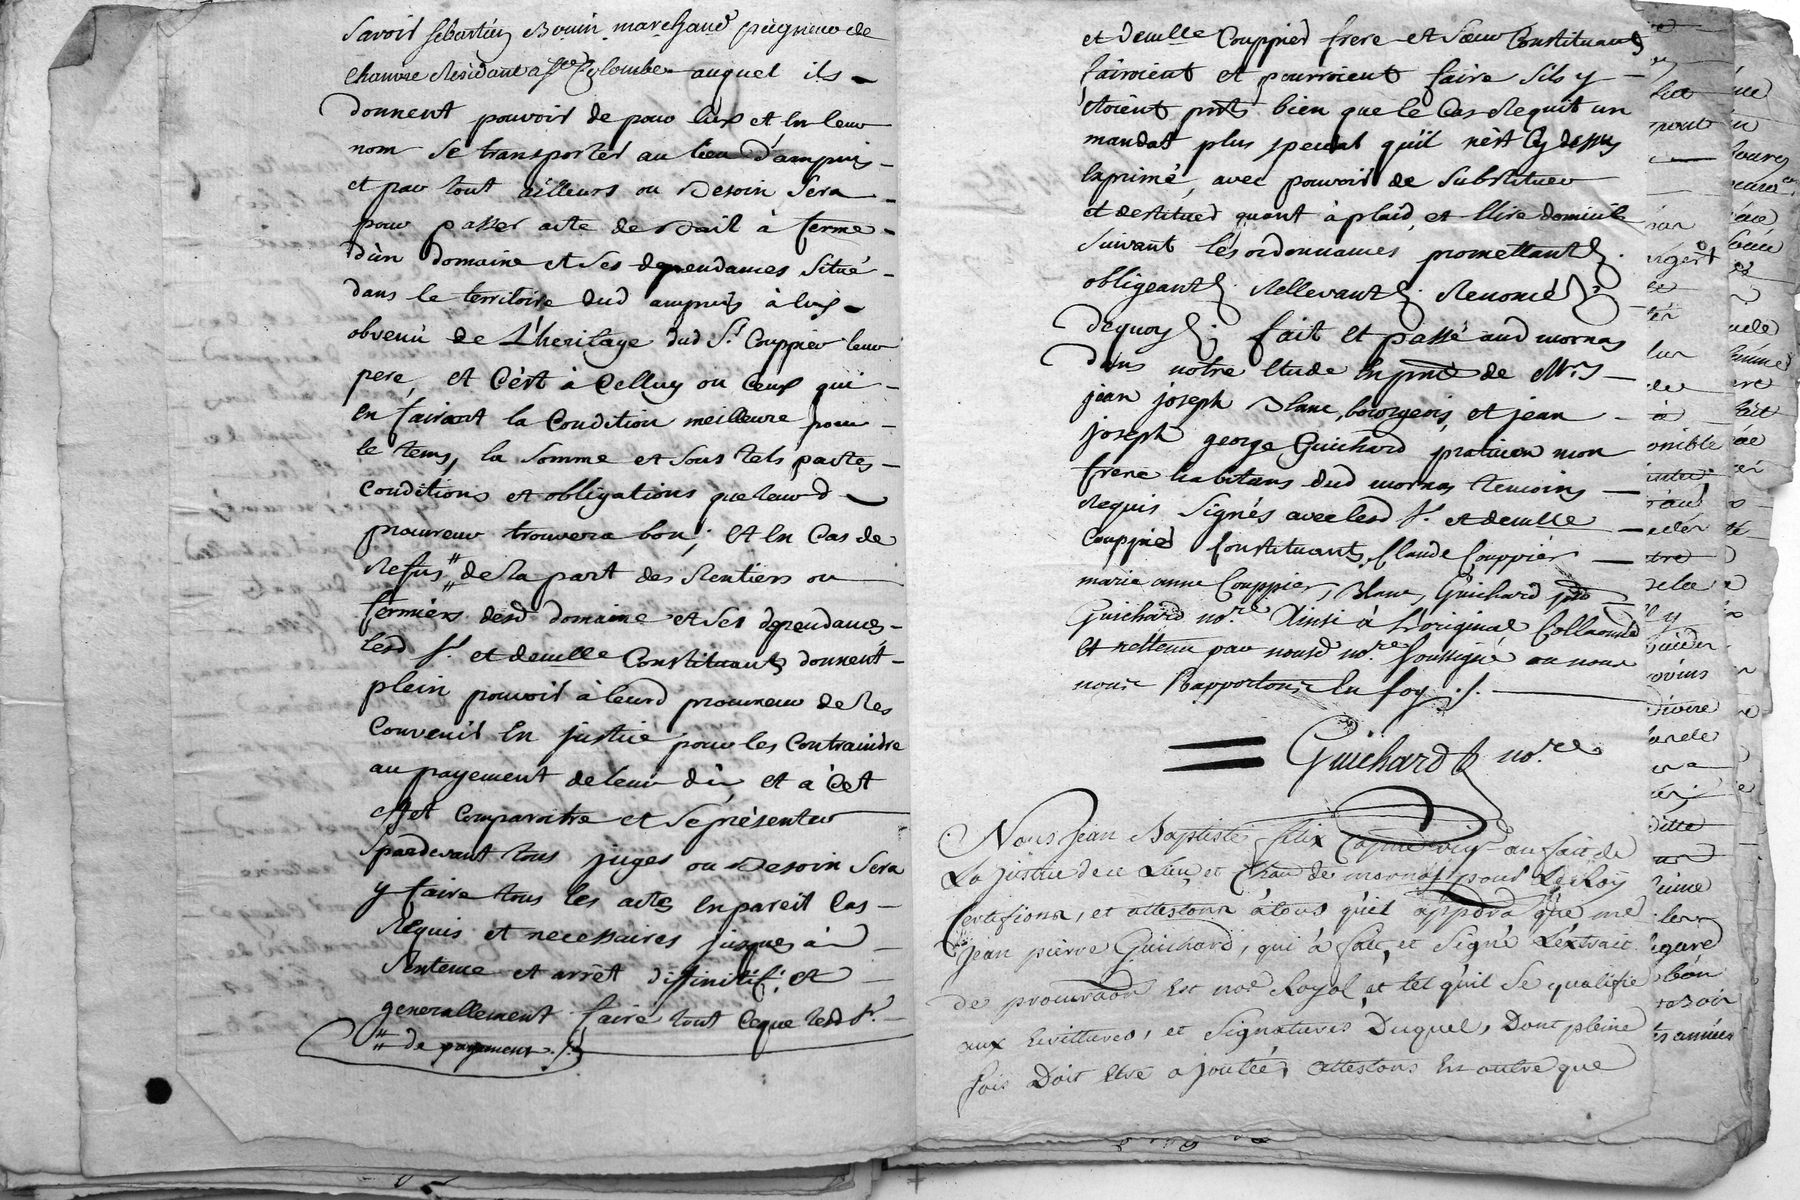 Savoir sebastien Bouin marchand peigneur de
chanvre Residant a Ste Colombe auquel ils
donnent pouvoir de pour eux et en leur
nom se transporter au lieu d'ampuis
et par tout ailleurs ou Besoin sera
pour passer acte de Bail à ferme
d'un domaine et ses dependances situé
dans le territoire dud ampuis à eux
obvenu de L'heritage dud Sr. Couppier leur
pere, et C'est à Celluy ou Ceux qui
en fairont la Condition meilleure pour
le tems, la somme et sous tels pactes
Conditions et obligations que leurd
procureur trouvera bon; et en Cas de
Refus de la part des Rentiers ou
fermiers desd domaine et ses dependances
lesd Sr. et demlle Constituants donnent
plein pouvoir à leurd procureur de les
Convenir en justice pour les Contraindre
au payement de leur dû, et à Cet
effet Comparoitre et se présenter
pardevant tous juges ou Besoin sera
y faire tous les actes en pareil Cas
Requis et necessaires jusques à
Sentence et arrêt diffinitif, et
generallement faire tout Ceque lesd Sr.
de payement ./.
et demlle Couppier frere et sœur Constituants
fairoient et pourroient faire s'ils y
étoient pnts bien que le Cas Requit un
mandat plus special qu'il n'est Cy dessus
Exprimé, avec pouvoir de substituer
et destituer quant à plaid, et Elire domicile
suivant les ordonnances promettant
obligeant Rellevant Renoncé
dequoy fait et passé aud mornas
dans notre Etude en pnce de Mrs
jean joseph Blanc, bourgeois, et jean
joseph george Guichard praticien mon
frere habitans dud mornas temoins
Requis signés avec lesd Sr. et demlle
Couppier Constituants, Claude Couppier
marie anne Couppier, Blanc, Guichard
Guichard nore. Ainsi à L'original Collationné
et rettenu par nousd nore soussigné ou nous
nous Rapportons en foy ./.
Guichard nore
Nous Jean Baptiste felix au fait de
La justice de ce Lieu et de mornas pour Le Roy
Certifions, et attestons à tous qu'il appdra que me
jean pierre Guichard, qui à fait, et signé L'extrait
de procuraon Est nore Royal, et tel qu'il se qualifie
aux Ecrittures, et signatures Duquel, Dont pleine
fois Doit etre ajoutée, attestons En outre que